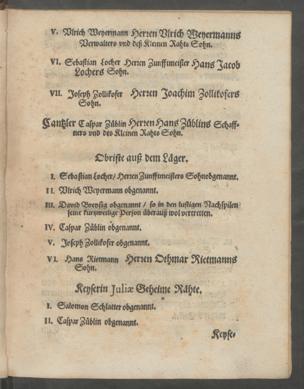 V. Vlrich Weyermann Herren Vlrich Weyermanns
Verwalters vnd deß Kleinen Rahts Sohn.
VI. Sebastian Locher Herren Zunfftmeister Hans Jacob
Lochers Sohn.
VII. Joseph Zollikofer Herren Joachim Zollikofers
Sohn.
Cantzler Caspar Züblin Herren Hans Züblins Schaff-
ners vnd des Kleinen Rahts Sohn.
Obriste auß dem Läger.
I. Sebastian Locher / Herren Zunfftmeisters Sohn obgenannt.
II. Vlrich Weyermann obgenannt.
III. David Breysig obgenannt / so in den lustigen Nachspilen
seine kurtzweilige Person überauß wol vertretten.
IV. Caspar Züblin obgenannt.
V. Joseph Zollikofer obgenannt.
VI. Hans Rietmann Herren Othmar Rietmanns
Sohn.
Keyserin Juliæ Geheime Rähte.
I. Salomon Schlatter obgenannt.
II. Caspar Züblin obgenannt.
Keyse-